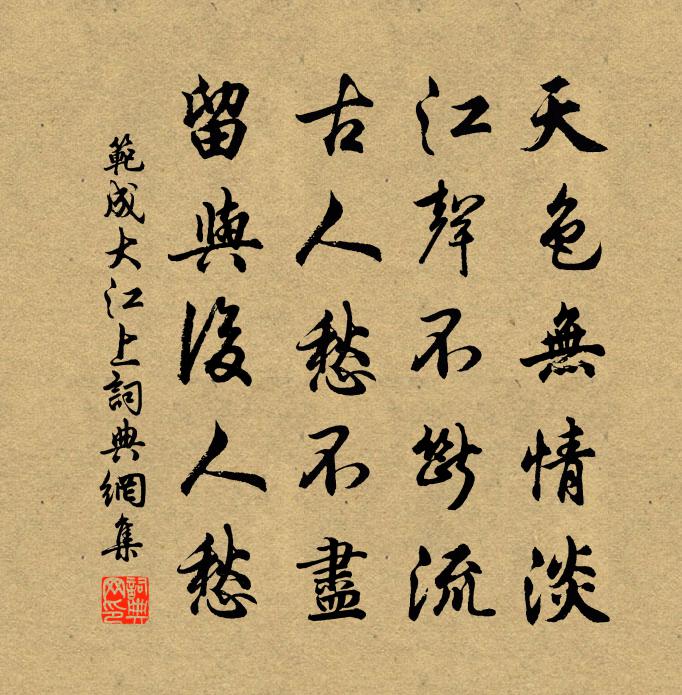 天色無情淡
江聲不斷流
古人愁不盡
留與後人愁
範成大江上詞典網集
詞典网印